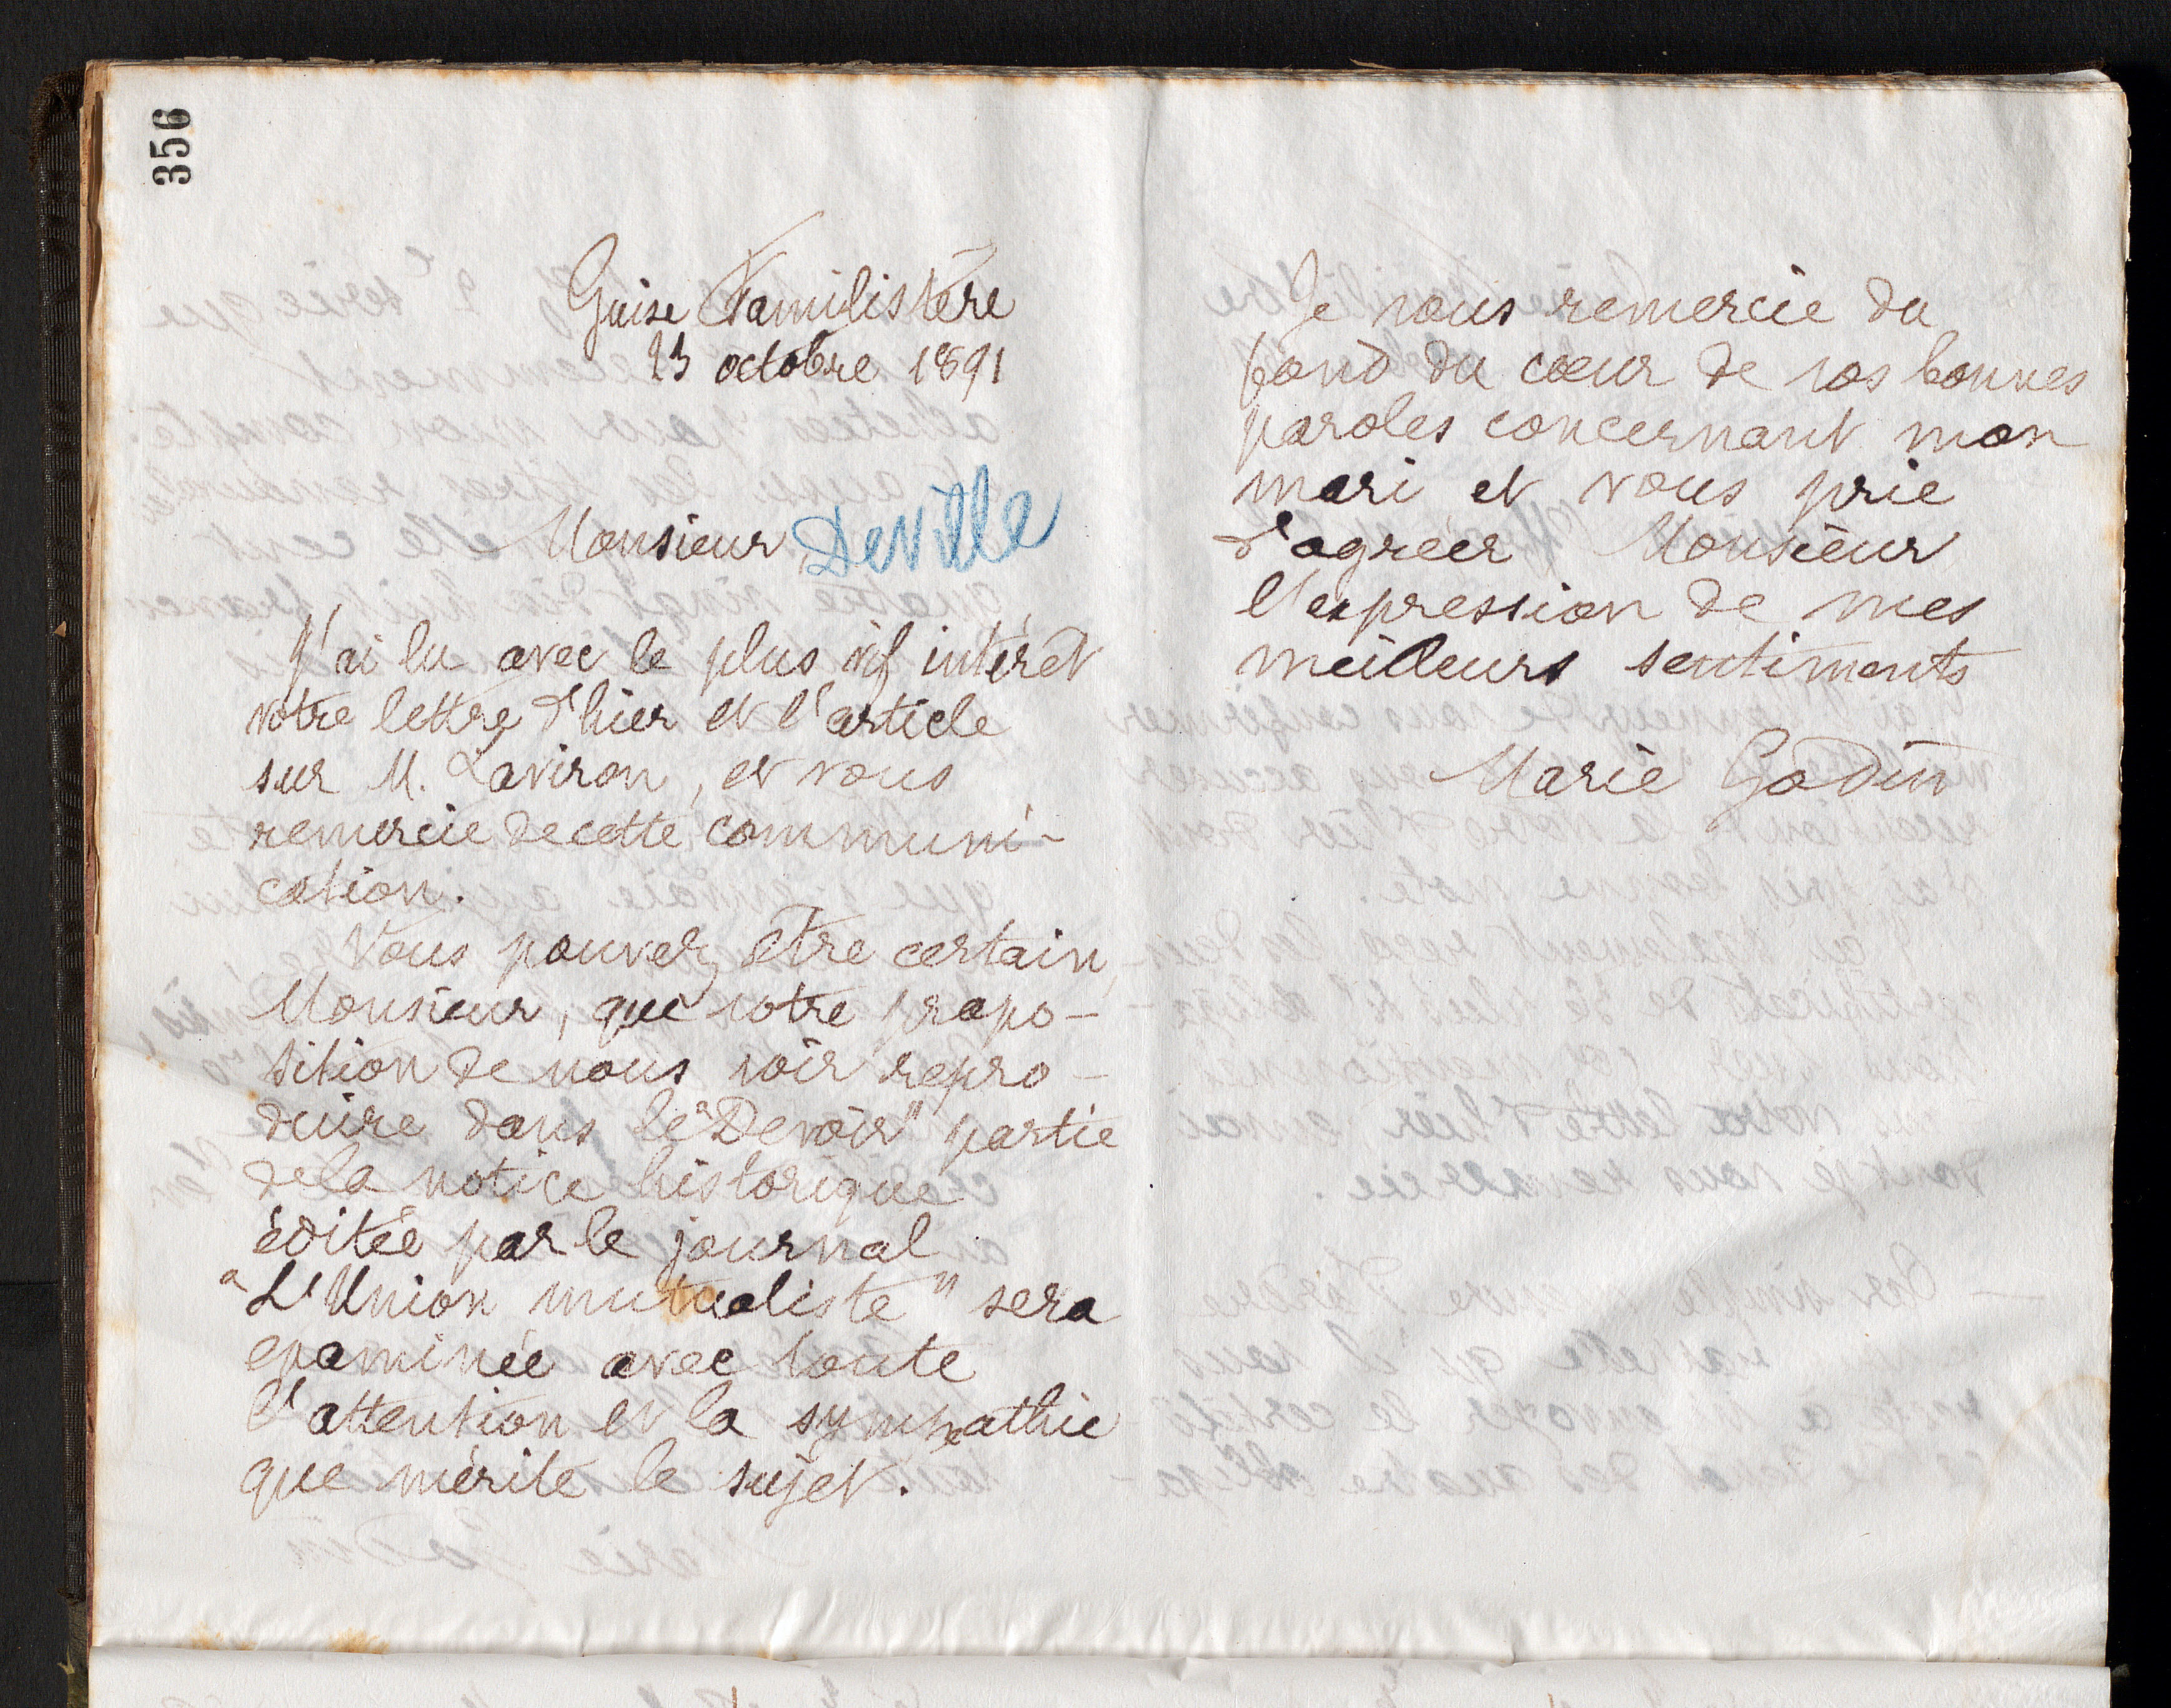 356
Guise Familistère
23 octobre 1891
Monsieur Deville
J'ai lu avec le plus vif intérêt
votre lettre d'hier et l'article
sur M. Laviron, et vous
remercie de cette communi-
cation.
Vous pouvez être certain,
Monsieur, que votre propo-
sition de nous voir repro-
duire dans le "Devoir" partie
de la notice historique
éditée par le journal
"L'Union mutualiste" sera
examinée avec toute
l'attention et la sympathie
que mérite le sujet.
Je vous remercie du
fond du cœur de vos bonnes
paroles concernant mon
mari et vous prie
d'agréer Monsieur
l'expression de mes
meilleurs sentiments
Marie Godin